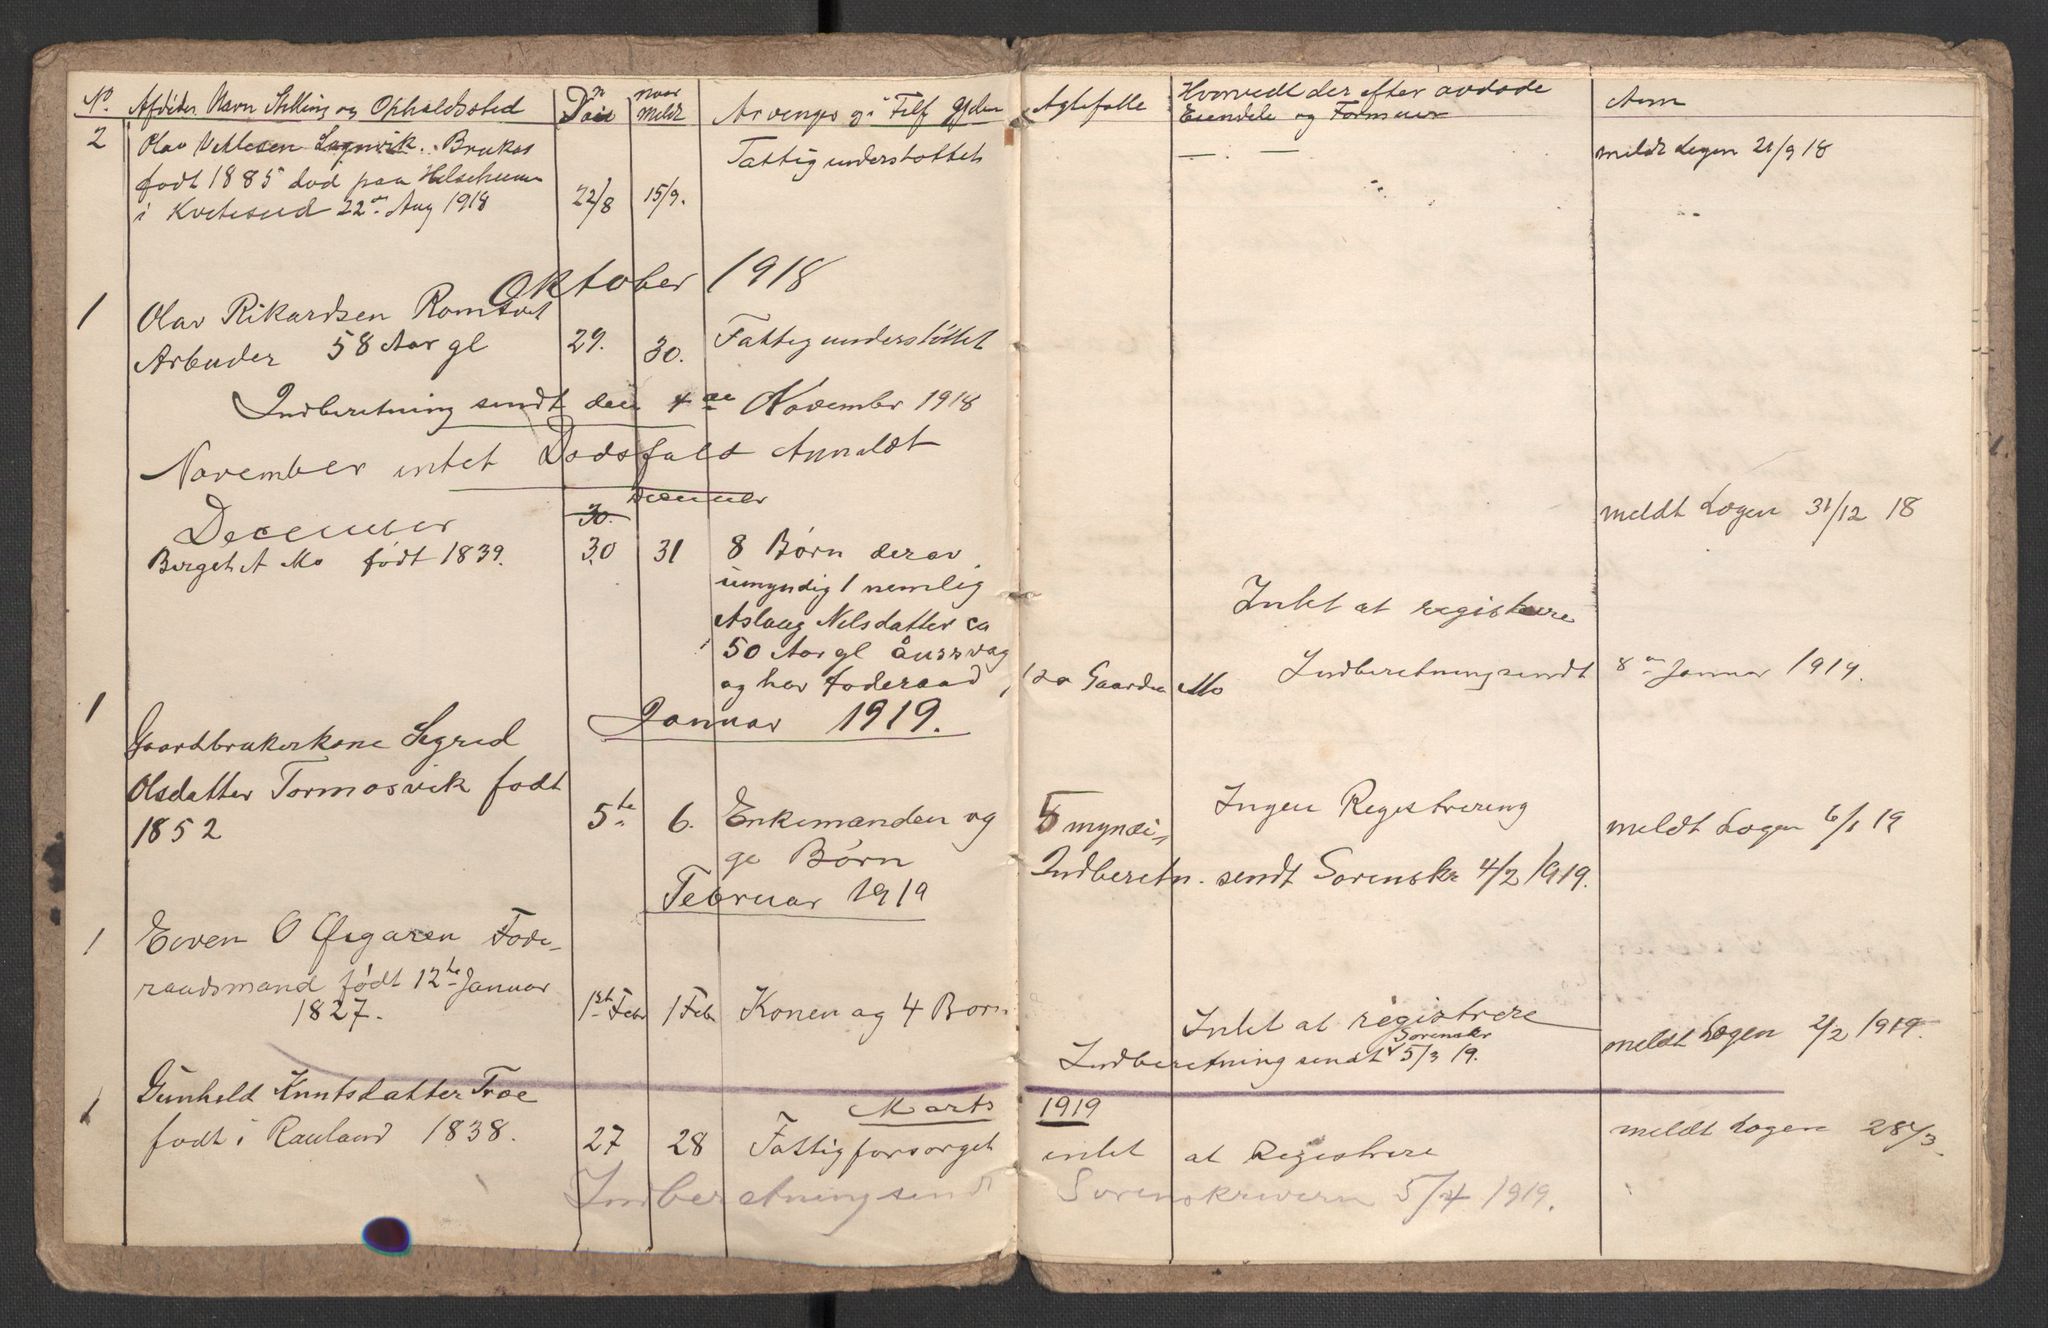 No. Afdødes Navn Stilling og Opholdssted Død naar meldt Arvinger Ægtefælle Hvorvedt der efter avdøde Anm
Eiendele og Formuer
2 Olav Vetlesen Lognvik. Bruker Fattigunderstøttet — . — meldt Logen 21/9 18
født 1885 død paa
i Kviteseid 22de Aug 1918 22/8 15/9.
Oktober 1918
1 Olav Rikardsen Romtvet
Arbeider 58 Aar gl 29. 30. Fattigunderstøttet
Indberetning sendt den 4de November 1918
November intet Dødsfald Anmeldt
December
meldt Logen 31/12 18
30.
Berget A Mo født 1839. 30 31 8 Børn derav
umyndig 1 nemlig Intet at registrere
Aslaug Nilsdatter ca
50 Aar gl åndssvag Indberetning sendt 8de Januar 1919.
og har føderaad paa Gaarden Mo
Januar 1919.
1 Gaardbrukerkone Sigrid
Olsdatter Tormosvik født
1852 5te 6. Enkemanden og 5 myndi- Ingen Registrering meldt Logen 6/1 19
ge Børn Indberetn. sendt Sorenskr 4/2 1919.
Februar 1919
1 Eiven O Øigaren Føde-
raadsmand født 12te Januar
1827. 1ste Febr 1 Feb Konen og 4 Born Intet at registrere meldt Logen 2/2 1919.
Indberetning sendt Sorenskr 5/3 19.
1 Gunhild Knutsdatter Troe Marts 1919
født i Rauland 1838. 27 28 Fattigforsorget intet at Registrere meldt Logen 28/3
Indberetning sendt Sorenskrivern 5/4 1919.